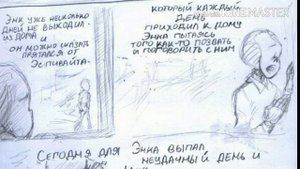 Энк уже несколько
дней не выходил
из дома и
он можно сказать
прятался от
Эспивайта.
который каждый
день
приходил к дому
Энка пытаясь
того как-то позвать
и поговорить с ним
Сегодня для Энка выпал
неудачный день и